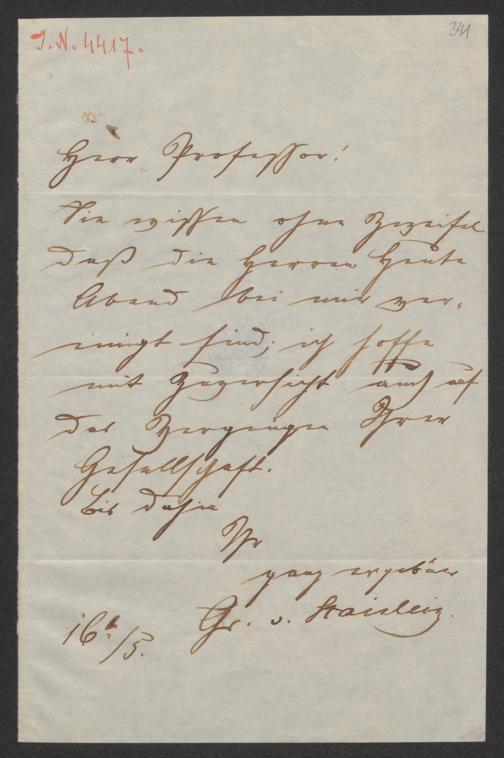 J. N. 4417.
341
Herr Professor!
Sie wissen ohne Zweifel
daß die Herren heute
Abend bei mir ver-
einigt sind; ich hoffe
mit Zuversicht auch auf
das Vergnügen Ihrer
Gesellschaft.
Bis dahin
Ihr
ganz ergebener
Gr. v.
16t/5.